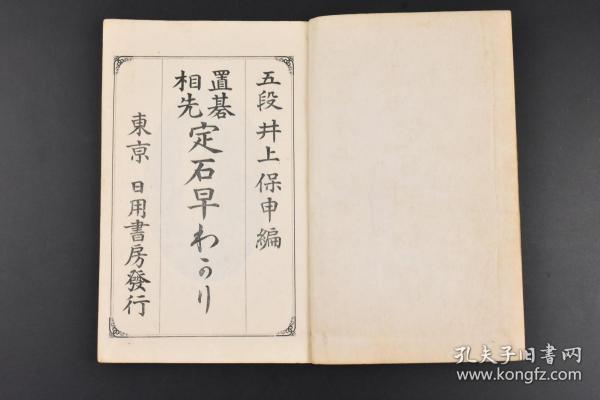 五段 井上保申編
置碁
相先
定石早わかり
東京 日用書房發行
孔夫子旧书网
www.kongfz.com